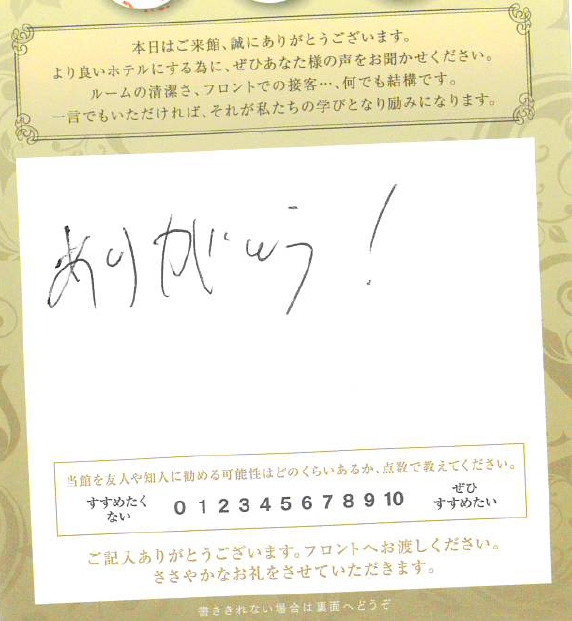 本日はご来館、誠にありがとうございます。
より良いホテルにする為に、ぜひあなた様の声をお聞かせください。
ルームの清潔さ、フロントでの接客…、何でも結構です。
一言でもいただければ、それが私たちの学びとなり励みになります。
ありがとう!
当館を友人や知人に勧める可能性はどのくらいあるか、点数で教えてください。
すすめたくない 0 1 2 3 4 5 6 7 8 9 10 ぜひすすめたい
ご記入ありがとうございます。フロントへお渡しください。
ささやかなお礼をさせていただきます。
書ききれない場合は裏面へどうぞ